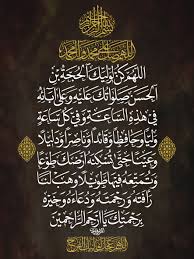 بسم الله الرحمن الرحيم
اللهم صل على محمد وآل محمد
اللهم كن لوليك الحجة بن
الحسن صلواتك عليه وعلى آبائه
في هذه الساعة وفي كل ساعة
وليا وحافظا وقائدا وناصرا ودليلا
وعينا حتى تسكنه أرضك طوعا
وتمتعه فيها طويلا وهب لنا
رأفته ورحمته ودعاءه وخيره
برحمتك يا أرحم الراحمين